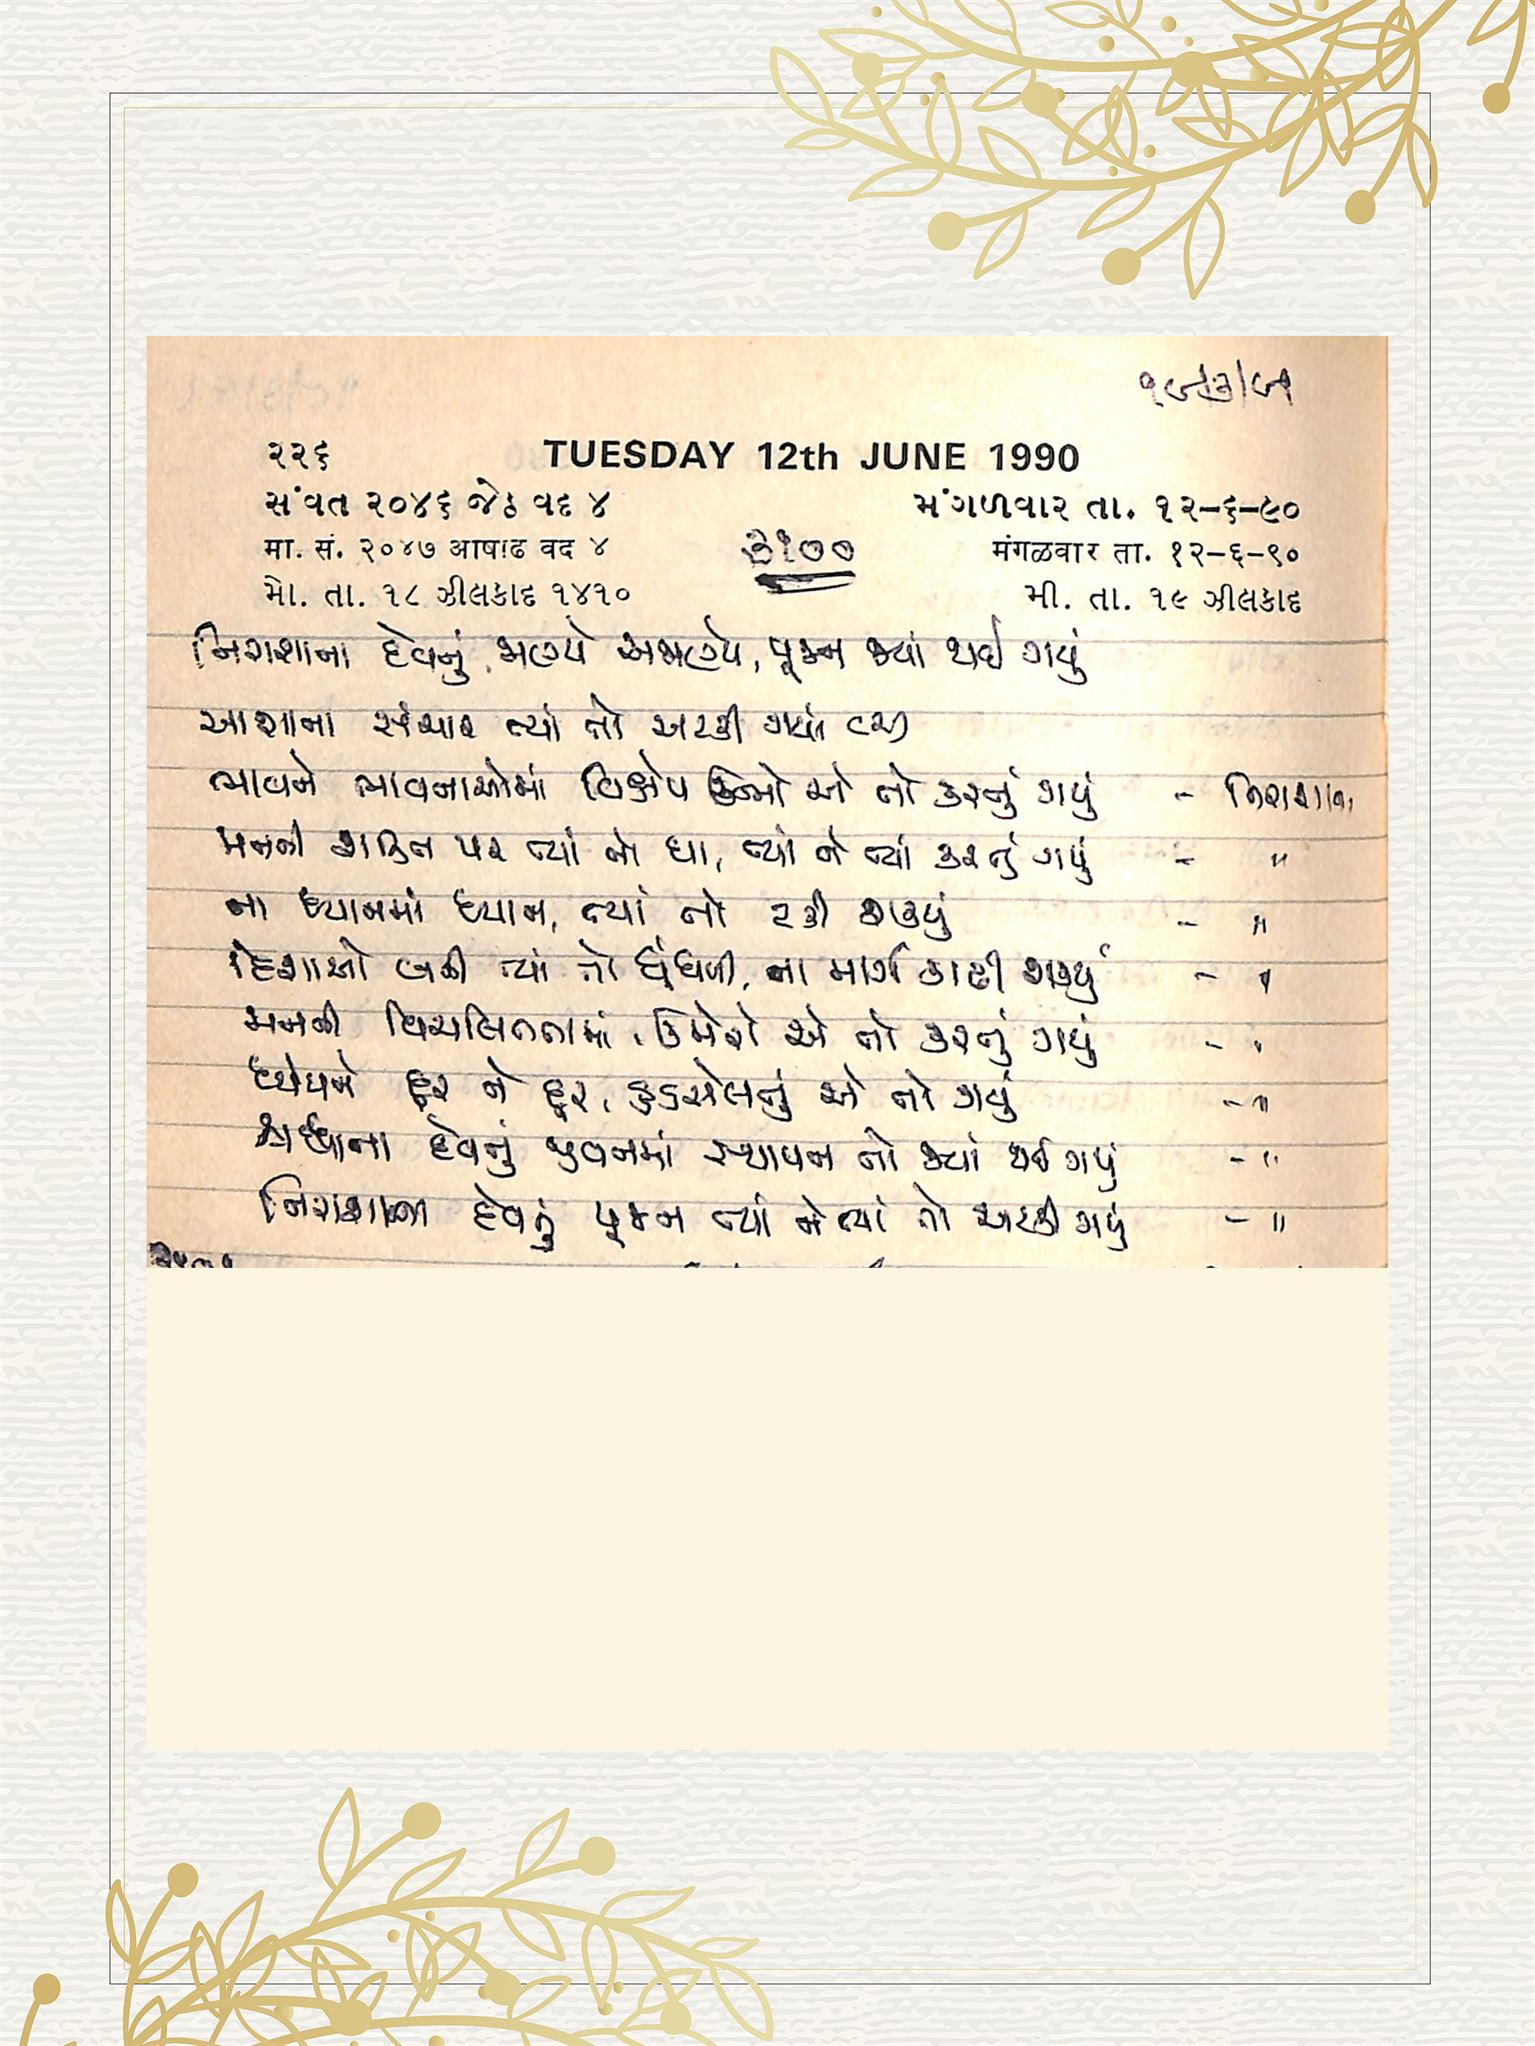 ૧૯/૩/૯૧
૨૨૬ TUESDAY 12th JUNE 1990
સંવત ૨૦૪૬ જેઠ વદ ૪ મંગળવાર તા. ૧૨-૬-૯૦
मा. सं. २०४७ आषाढ वद ४ ૩૧૦૦ मंगळवार ता. १२-६-९०
મો. તા. ૧૮ ઝીલકાદ ૧૪૧૦ મી. તા. ૧૯ ઝીલકાદ
નિરાશાના દેવનું જાણ્યે અજાણ્યે, પૂજન જ્યાં થઈ ગયું
આશાના સંચાર ત્યાં તો અટકી ગયાં (૨)
ભાવને ભાવનાઓમાં વિક્ષેપ ઊભો એ તો કરતું ગયું - નિરાશાના
મનની શક્તિ પર ત્યાં તો ઘા, ત્યાં ને ત્યાં કરતું ગયું - "
ના ધ્યાનમાં ધ્યાન, ત્યાં તો રહી શક્યું - "
દિશાઓ બની ત્યાં તો ધૂંધળી, ના માર્ગ કાઢી શક્યું - "
મનની વિચલિતતામાં, ઉમેરો એ તો કરતું ગયું - "
ધ્યેયને દૂર ને દૂર, હડસેલતું એ તો ગયું - "
શ્રધ્ધાના દેવનું જીવનમાં સ્થાપન તો જ્યાં થઈ ગયું - "
નિરાશાના દેવનું પૂજન ત્યાં ને ત્યાં તો અટકી ગયું - "